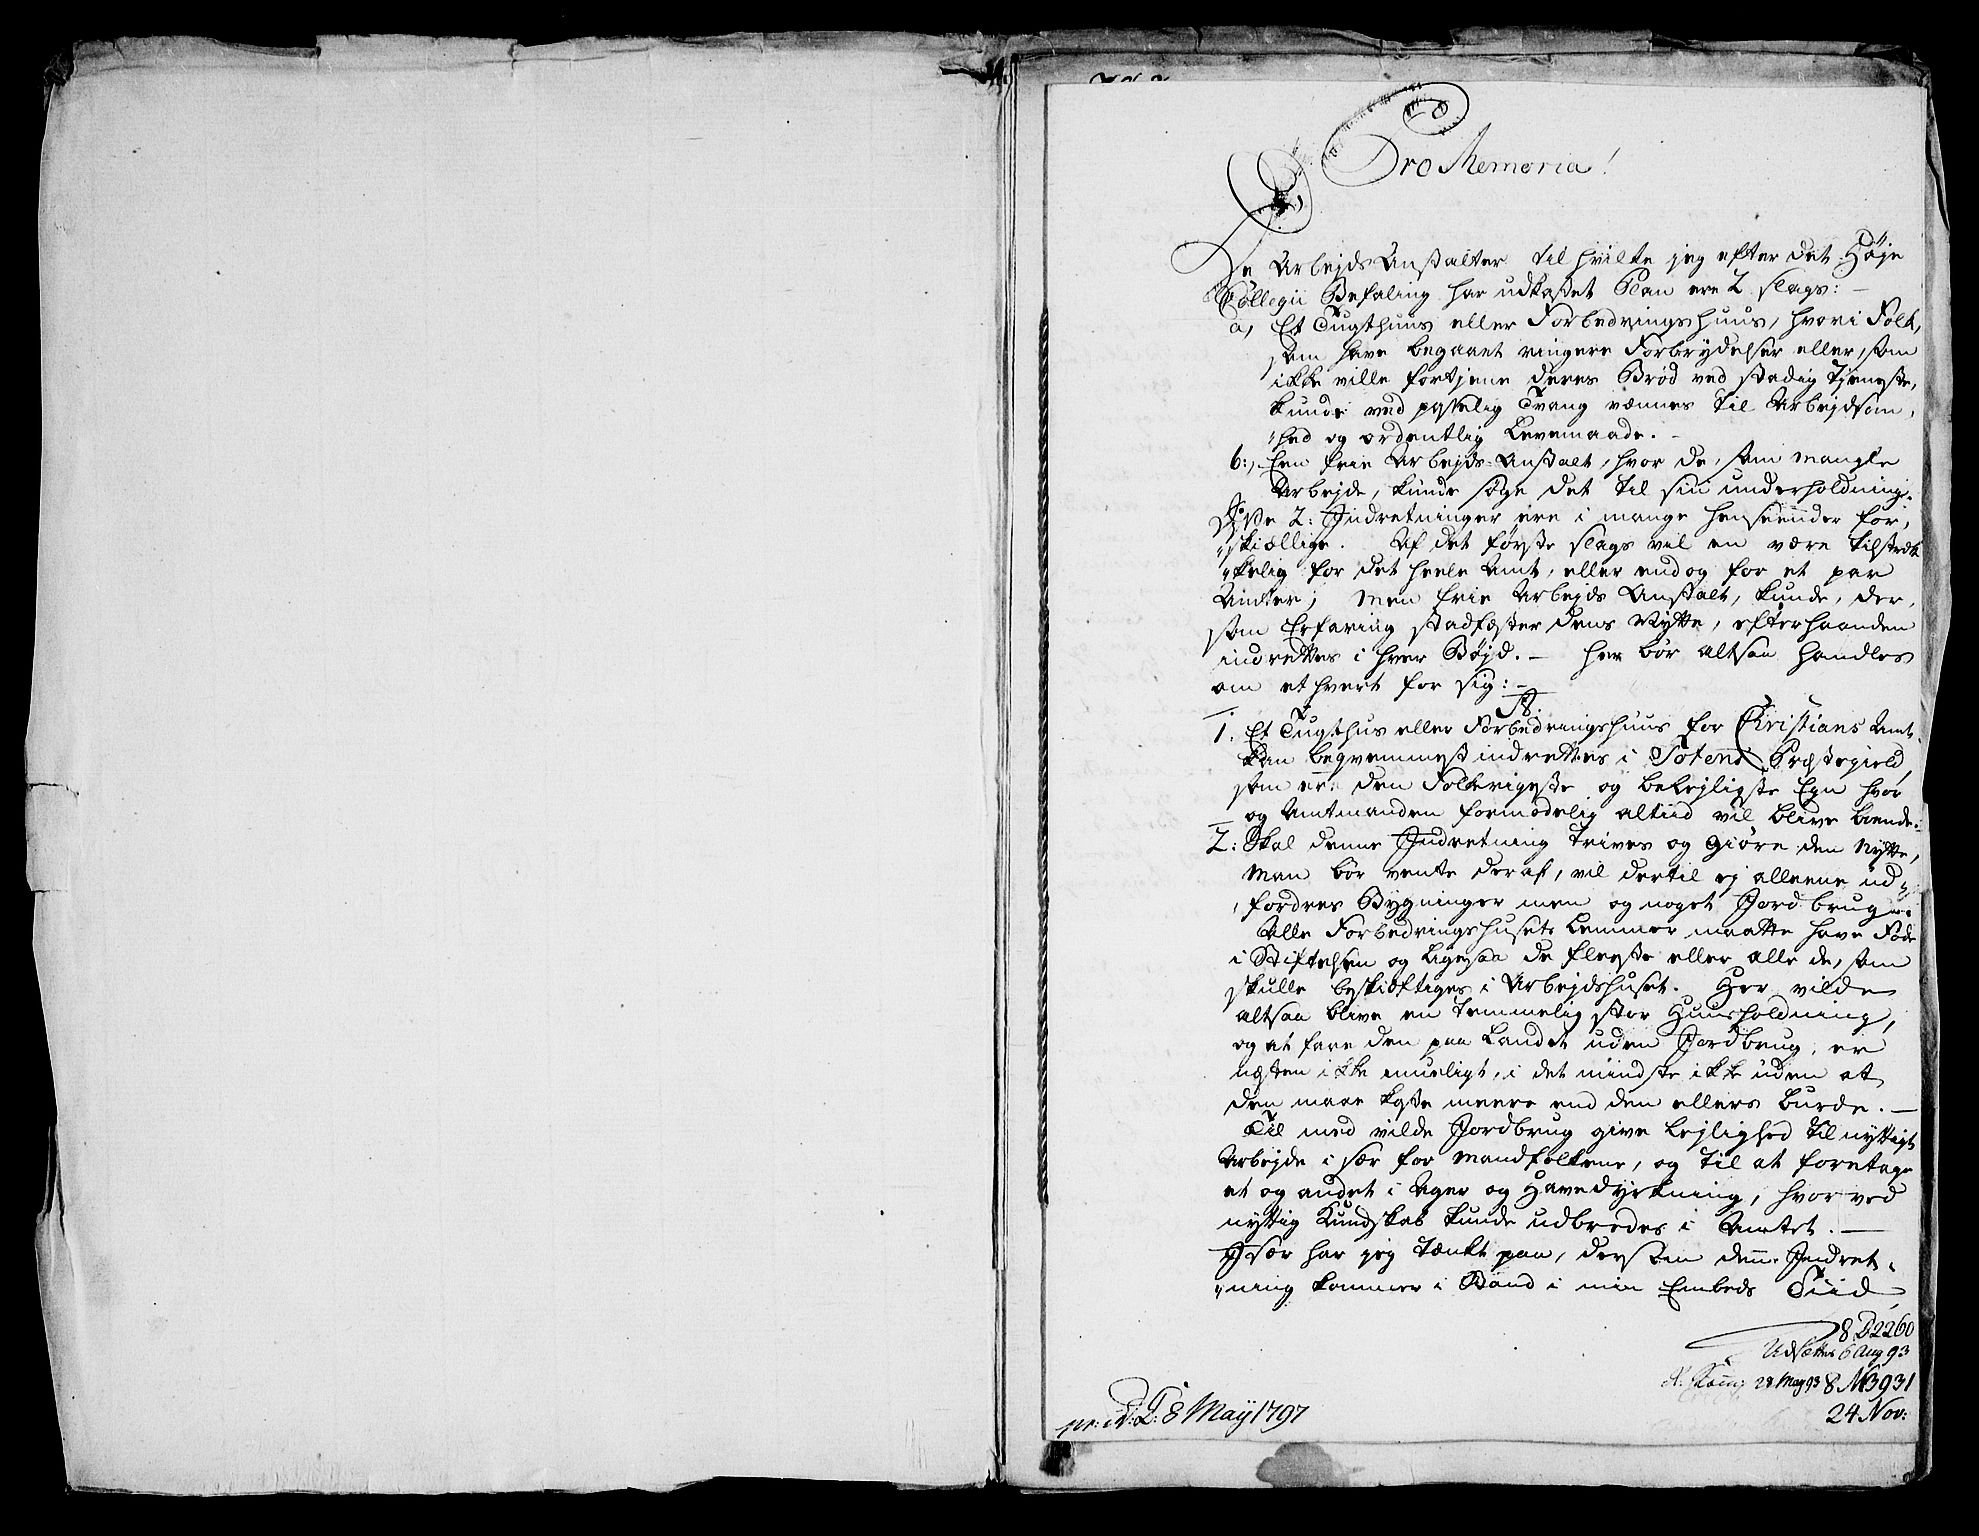 Pro Memoria!
De Arbejds Anstalter til hvilke jeg efter det Høje
Collegii Befaling har udkastet Plan ere 2 slags: —
a, Et Tugthuus eller Forbedringshuus, hvori Folk,
som have begaaet ringere Forbrydelser eller, som
ikke ville fortjene deres Brød ved stadig Tjeneste,
kunde ved passelig Tvang vænnes til Arbejdsom„
„hed og ordentlig Levemaade. —
b:, Een frie Arbejds-Anstalt, hvor de, som mangle
Arbejde, kunde søge det til sin underholdning.
Disse 2: Indretninger ere i mange henseender for„
„skiællige. Af det første slags vil en være tilstræk
„kelig for det heele Amt, eller endog for et par
Amter; Men frie Arbejds Anstalt, kunde, der„
som Erfaring stadfæster dens Nytte, efterhaanden
indrettes i hver Bøjd. — her bør altsaa handles
om ethvert for sig: —
A.
1. Et Tugthus eller Forbedringshuus for Christians Amt
kan beqvemmest indrettes i Totens Præstegield,
som er den Folkerigeste og belejligste Egn hvor
og Amtmanden formodelig altiid vil blive boende.
2: Skal denne Indretning trives og giøre den Nytte,
man bør vente deraf, vil dertil ej alleene ud„
„fordres Bygninger men og noget Jordbrug.
Alle Forbedringshusets Lemmer maatte have Føde
i Stiftelsen og ligesaa de fleeste eller alle de, som
skulle beskiæftiges i Arbejdshuset. Her vilde
altsaa blive en temmelig stor Huusholdning,
og at føre den paa Landet uden Jordbrug, er
næsten ikke mueligt, i det mindste ikke uden at
den maae koste meere end den ellers burde. —
Til med vilde Jordbrug give Lejlighed til nyttigt
Arbejde i sær for Mandfolkene, og til at foretage
et og andet i Ager og Havedyrkning, hvorved
nyttig Kundskab kunde udbredes i Amtet. —
Især har jeg tænkt paa, dersom denne Indret„
„ning kommer i Stand i min Embeds Tiid,
8 D2260
Udsættes 6 Aug 93
28 May 93 8 N3931
24 Nov:
pr: d: 8 Maÿ 1797